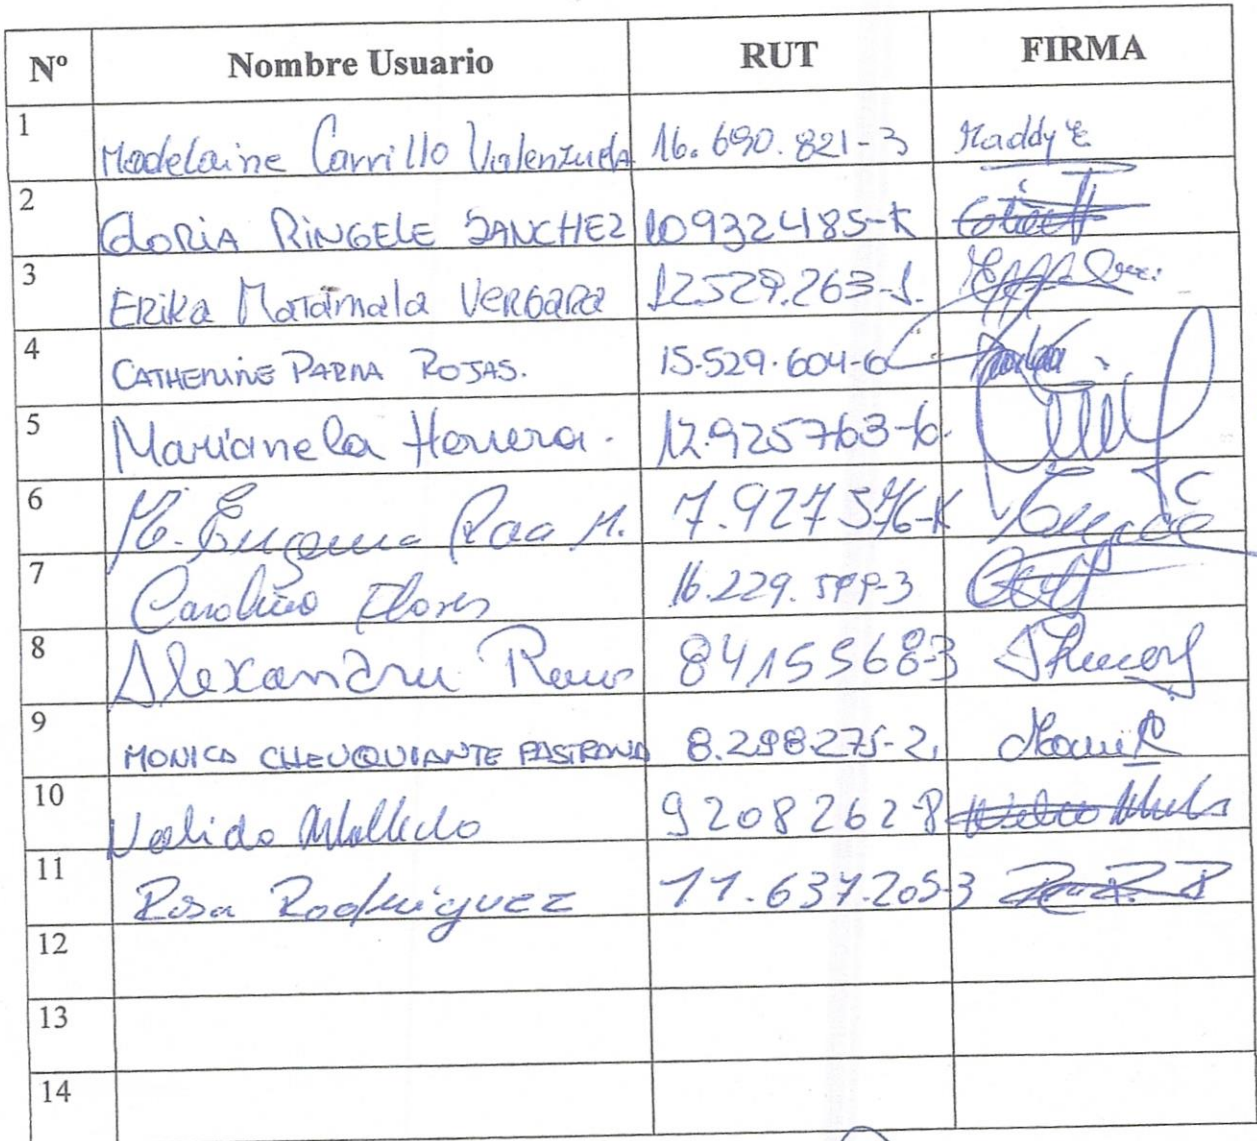 Nº Nombre Usuario RUT FIRMA
1 Madelaine Carrillo Valenzuela 16.690.821-3 Maddy
2 GLORIA RINGELE SANCHEZ 109324485-K
3 ERIKA Matamala VERGARA 12529.263-1.
4 CATHERINE PARRA ROJAS. 15.529.604-6
5 Marianela Herrera. 12.925763-6.
6 M. Eugenia M. 7.927576-K
7 Flores 16.229.599-3
8 Alexandra 84155683
9 MONICA CHEUQUIANTE PASTRANA 8.298275-2
10 9208262-8
11 Rosa Rodriguez 11.637.205-3
12
13
14